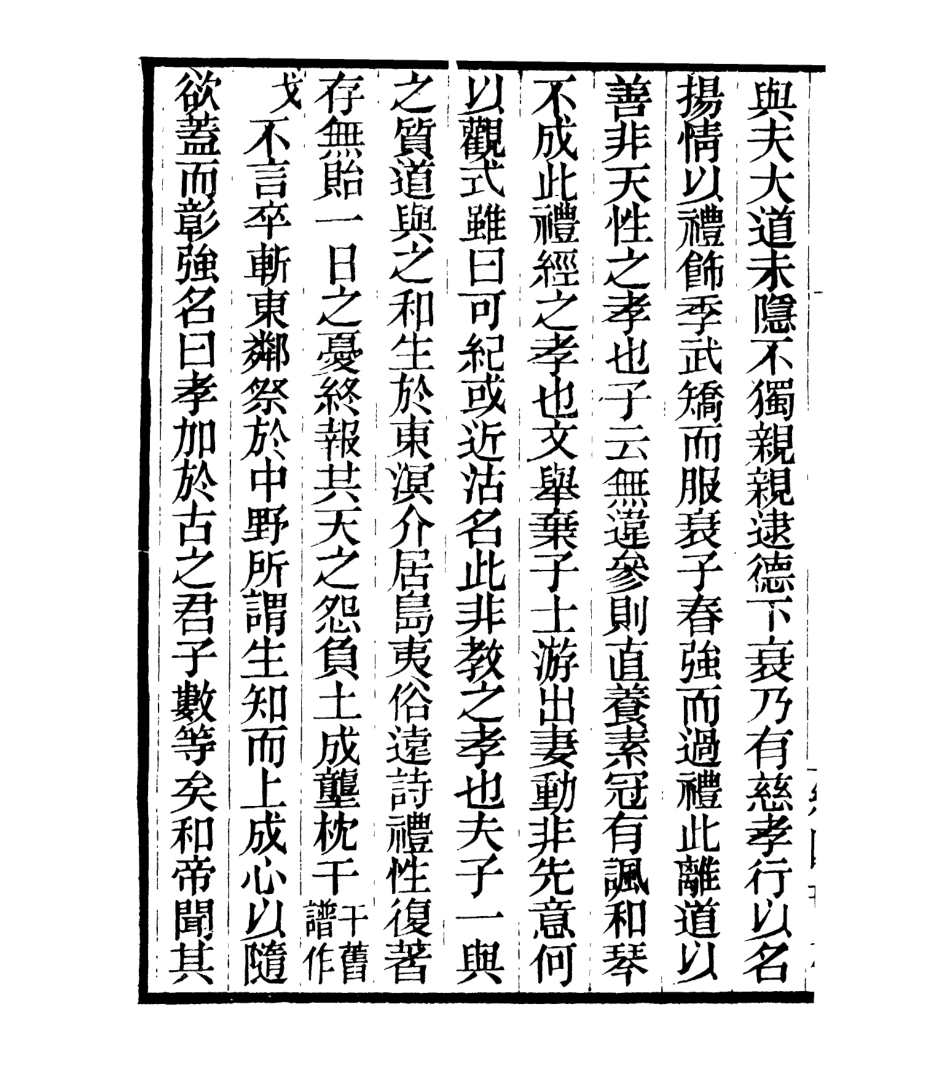 與夫大道未隱不獨親親逮德下衰乃有慈孝行以名
揚情以禮飾季武矯而服衰子春強而過禮此離道以
善非天性之孝也子云無違參則直養素冠有諷和琴
不成此禮經之孝也文舉棄子士游出妻動非先意何
以觀式雖曰可紀或近沽名此非教之孝也夫子一與
之質道與之和生於東溟介居島夷俗遠詩禮性復著
存無貽一日之憂終報其天之怨負土成壟枕干干舊譜作
戈不言卒斬東鄰祭於中野所謂生知而上成心以隨
欲蓋而彰強名曰孝加於古之君子數等矣和帝聞其